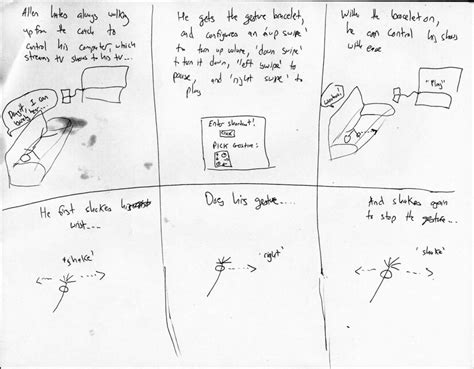 Allen hates always walking
up from the couch to
control his computer, which
streams TV shows to his TV...
Dangit, I can
barely hear...
He gets the gesture bracelet,
and configures an 'up swipe'
to turn up volume, 'down swipe'
to turn it down, 'left swipe' to
pause, and 'right swipe' to
play
Enter shortcut:
PICK Gesture:
With the bracelet on,
he can control his shows
with ease
"Play"
He first shakes his
wrist....
'shake'
Does his gesture....
'right'
And shakes again
to stop the gesture...
'shake'